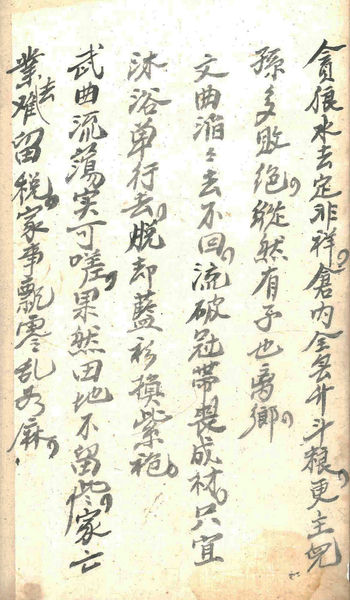 貪狼水去定非祥倉内全無升斗粮更主兒
孫多敗絶縱然有子也离鄉
文曲滔々去不回流破冠帶喪成材只宜
沐浴单行去脱却藍衫換紫袍
武曲流蕩实可嗟果然田地不留些家亡
業去留税家事飄零乱如麻